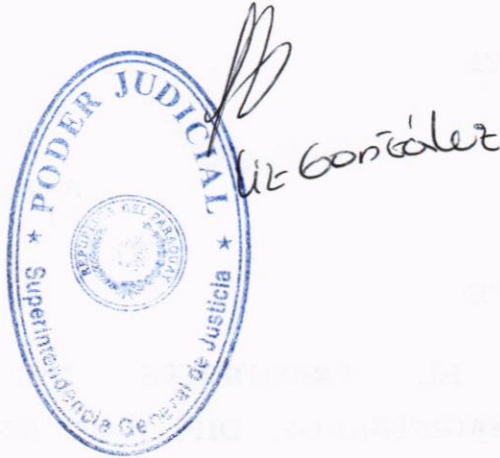 ★ PODER JUDICIAL ★
REPUBLICA DEL PARAGUAY
Superintendencia General de Justicia
Liz González